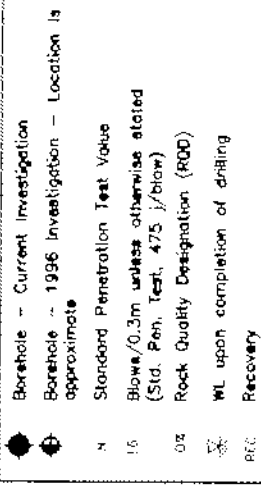 Borehole – Current Investigation
Borehole – 1996 Investigation – Location is
approximate
N Standard Penetration Test Value
16 Blows/0.3m unless otherwise stated
(Std. Pen. Test, 475 J/blow)
0% Rock Quality Designation (RQD)
WL upon completion of drilling
REC Recovery